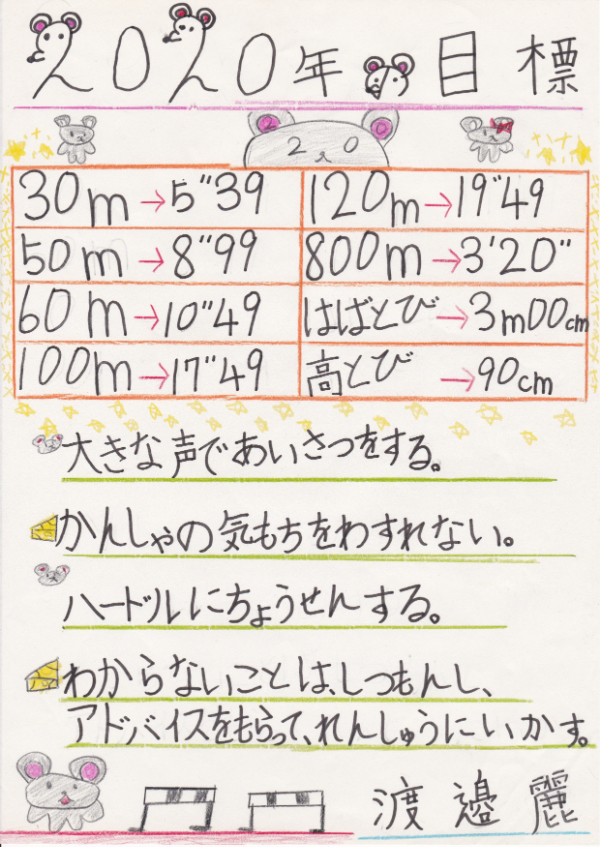 2020年の目標
20
30m→5"39
120m→19"49
50m→8"99
800m→3'20"
60m→10"49
はばとび→3m00cm
100m→17"49
高とび→90cm
大きな声であいさつをする。
かんしゃの気もちをわすれない。
ハードルにちょうせんする。
わからないことは、しつもんし、
アドバイスをもらって、れんしゅうにいかす。
渡邉麗